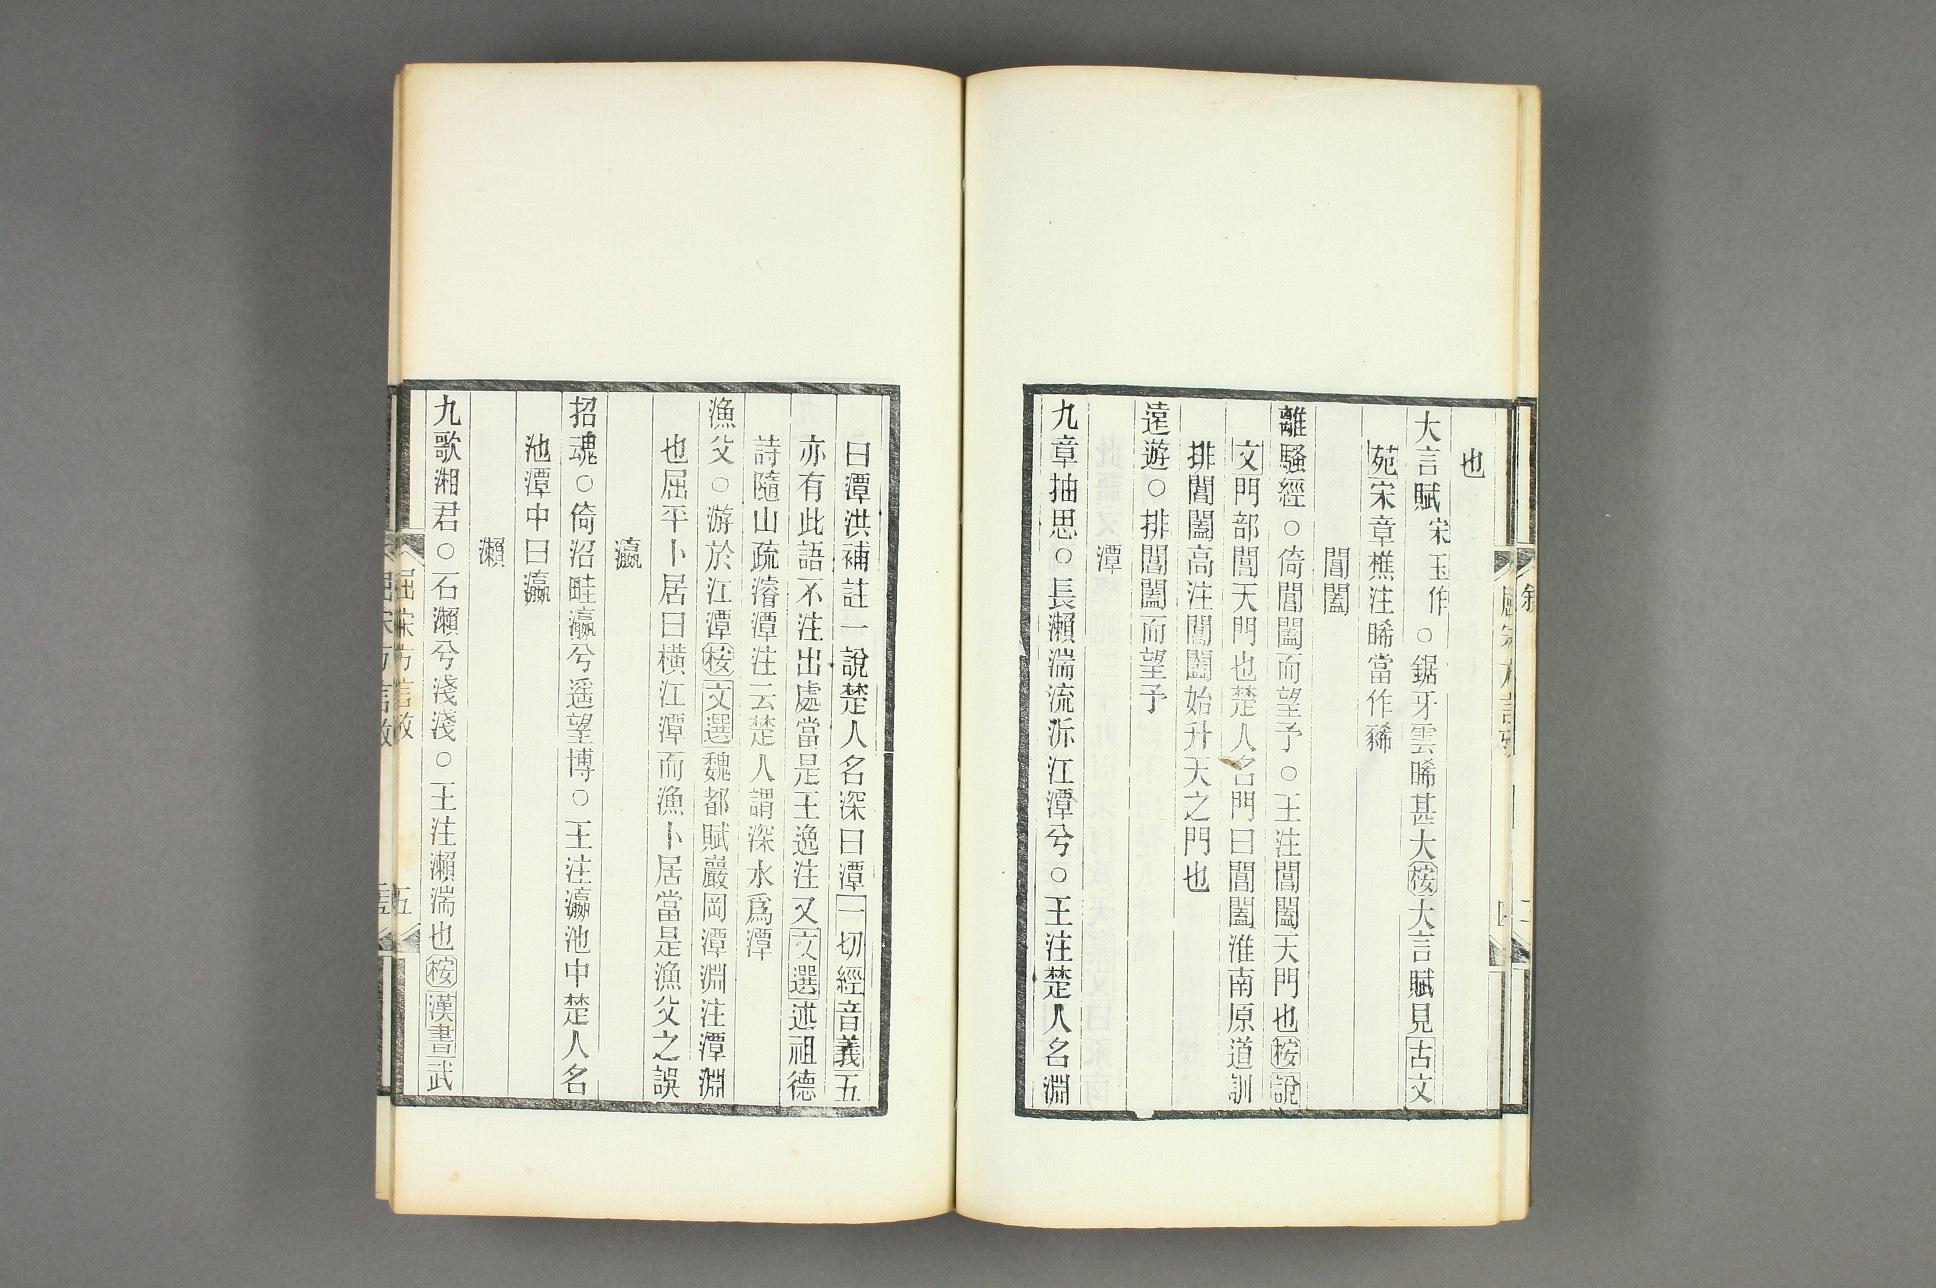 也
大言賦宋玉作○鋸牙雲晞甚大桉大言賦見古文
苑宋章樵注晞當作豨
閶闔
離騷經○倚閶闔而望予○王注閶闔天門也桉說
文門部閶天門也楚人名門曰閶闔淮南原道訓
排閶闔高注閶闔始升天之門也
遠遊○排閶闔而望予
潭
九章抽思○長瀨湍流泝江潭兮○王注楚人名淵
曰潭洪補註一說楚人名深曰潭一切經音義五
亦有此語不注出處當是王逸注又文選述祖德
詩隨山疏濬潭注云楚人謂深水爲潭
漁父○游於江潭桉文選魏都賦巖岡潭淵注潭淵
也屈平卜居曰橫江潭而漁卜居當是漁父之誤
瀛
招魂○倚沼畦瀛兮遥望博○王注瀛池中楚人名
池潭中曰瀛
瀨
九歌湘君○石瀨兮淺淺○王注瀨湍也桉漢書武
屈宋方言攷
五